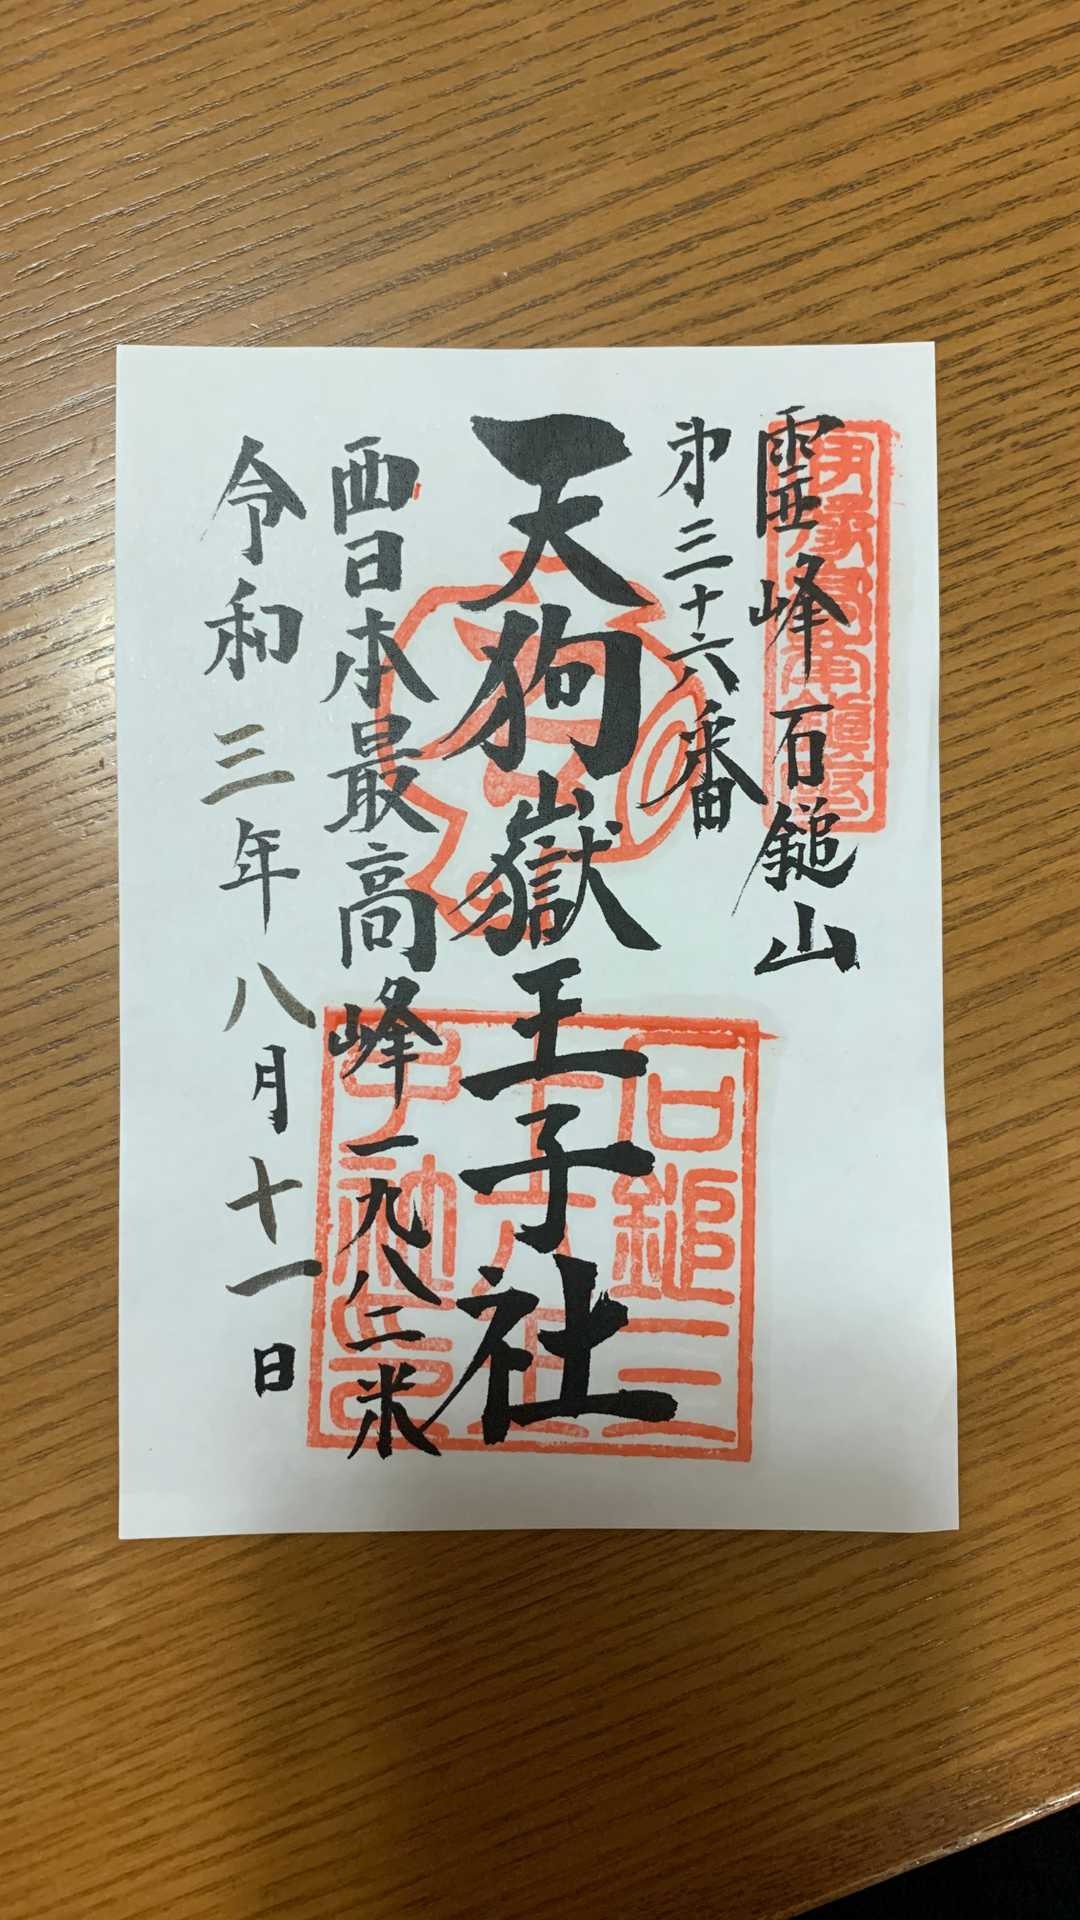 霊峰石鎚山
第三十六番
天狗嶽王子社
西日本最高峰一九八二米
令和三年八月十一日
石鎚三
十六王
子社之印